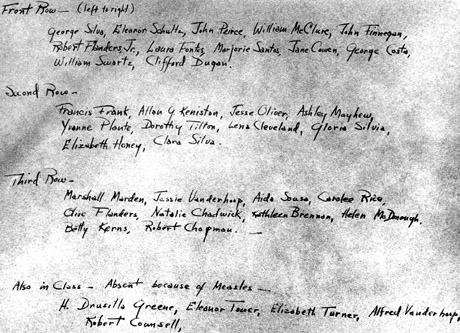 Front Row — (left to right)
George Silva, Eleanor Schultz, John Peirce, William McClure, John Finnegan,
Robert Flanders, Jr., Laura Fontes, Marjorie Santos, Jane Cowen, George Costa,
William Swartz, Clifford Dugan.
Second Row —
Francis Frank, Allan G Keniston, Jesse Oliver, Ashley Mayhew,
Yvonne Plante, Dorothy Tilton, Lena Cleveland, Gloria Silvia,
Elizabeth Honey, Clara Silva.
Third Row —
Marshall Marden, Jessie Vanderhoop, Aida Sousa, Carolee Rice,
Clive Flanders, Natalie Chadwick, Kathleen Brennan, Helen McDonough.
Betty Kerns, Robert Chapman. —
Also in Class — Absent because of Measles —
H. Drusilla Greene, Eleanor Tower, Elizabeth Turner, Alfred Vanderhoop,
Robert Counsell,